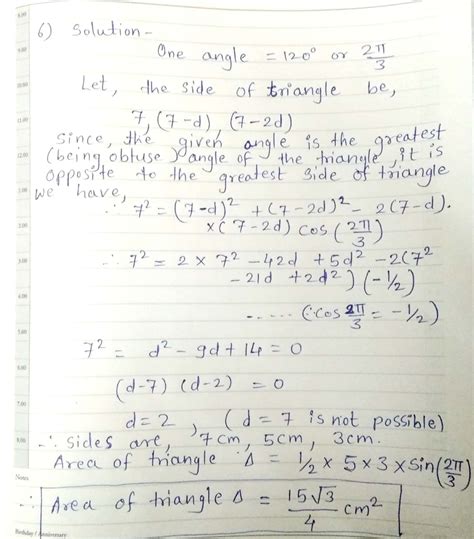 8.00
6) Solution -
9.00
One angle = 120° or 2π/3
10.00
Let, the side of triangle be,
11.00
7, (7-d), (7-2d)
Since, the given angle is the greatest
12.00
(being obtuse) angle of the triangle, it is
opposite to the greatest side of triangle
1.00
we have,
∴ 7² = (7-d)² + (7-2d)² - 2(7-d).
2.00
×(7-2d) cos (2π/3)
3.00
∴ 7² = 2 × 7² - 42d + 5d² - 2(7²
- 21d + 2d²) (-1/2)
4.00
..... (∵ cos 2π/3 = -1/2)
5.00
7² = d² - 9d + 14 = 0
6.00
(d-7) (d-2) = 0
7.00
d = 2 , (d = 7 is not possible)
8.00
∴ sides are, 7cm, 5cm, 3cm.
Area of triangle Δ = 1/2 × 5 × 3 × sin(2π/3)
Notes
∴ Area of triangle Δ = 15√3/4 cm²
Birthday / Anniversary